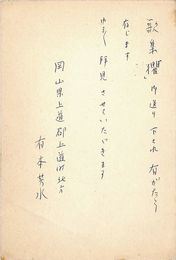 歌集 欅 御送り下され有がたう
存じます
ゆるゆる拝見させていただきます
岡山県上道郡上道町北方
有本芳水